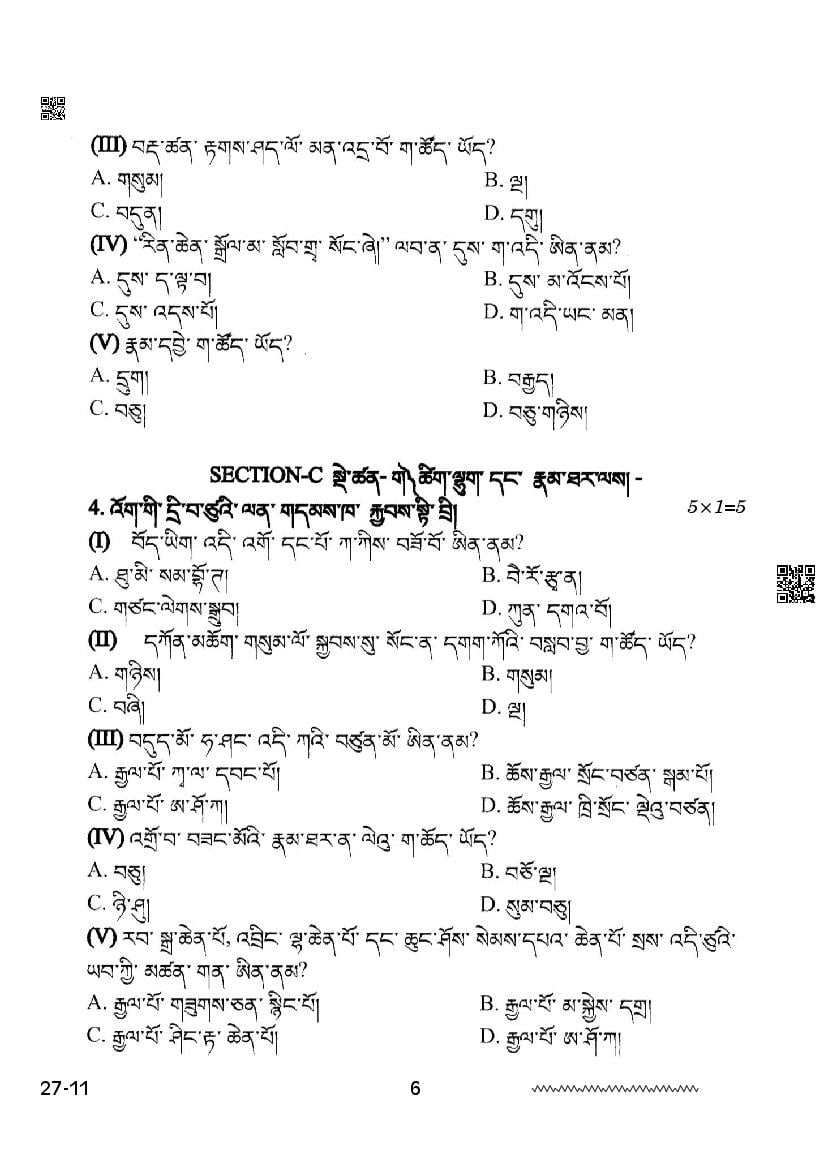 (III) བརྡ་ཚན་ རྟགས་ཤད་ལོ་ མན་འདྲ་བོ་ ག་ཚོད་ ཡོད?
A. གསུམ། B. ལྔ།
C. བདུན། D. དགུ།
(IV) “རིན་ཆེན་ སྒྲོལ་མ་ སློབ་གྲྭ་ སོང་ཞེ།” ལབ་ན་ དུས་ ག་འདི་ ཨིན་ནམ?
A. དུས་ ད་ལྟ་བ། B. དུས་ མ་འོངས་པོ།
C. དུས་ འདས་པོ། D. ག་འདི་ཡང་ མན།
(V) རྣམ་དབྱེ་ ག་ཚོད་ ཡོད?
A. དྲུག། B. བརྒྱད།
C. བཅུ། D. བཅུ་གཉིས།
SECTION-C སྡེ་ཚན- ག༽ ཚིག་ལྷུག་ དང་ རྣམ་ཐར་ལས། -
4. འོག་གི་ དྲི་བ་ཙུའི་ ལན་ གདམས་ཁ་ རྐྱབས་སྟི་ བྲི། 5×1=5
(I) བོད་ཡིག་ འདི་ འགོ་ དང་པོ་ ཀ་ཀིས་ བཟོ་བོ་ ཨིན་ནམ?
A. ཐུ་མི་ སམ་བྷོ་ཊ། B. བེ་རོ་རྩྭ་ན།
C. གཙང་ལེགས་སྒྲུབ། D. ཀུན་ དགའ་བོ།
(II) དཀོན་མཆོག་ གསུམ་ལོ་ སྐྱབས་སུ་ སོང་ན་ དགག་ཀོའི་ བསླབ་བྱ་ ག་ཚོད་ ཡོད?
A. གཉིས། B. གསུམ།
C. བཞི། D. ལྔ།
(III) བདུད་མོ་ ཧ་ཤང་ འདི་ ཀའི་ བཙུན་མོ་ ཨིན་ནམ?
A. རྒྱལ་པོ་ ཀཱ་ལ་ དབང་པོ། B. ཆོས་རྒྱལ་ སྲོང་བཙན་ སྒམ་པོ།
C. རྒྱལ་པོ་ ཨ་ཤོ་ཀ། D. ཆོས་རྒྱལ་ ཁྲི་སྲོང་ ལྡེའུ་བཙན།
(IV) འགྲོ་བ་ བཟང་མོའི་ རྣམ་ཐར་ན་ ལེའུ་ ག་ཚོད་ ཡོད?
A. བཅུ། B. བཅོ་ལྔ།
C. ཉི་ཤུ། D. སུམ་བཅུ།
(V) རབ་ སྒྲ་ཆེན་པོ, འབྲིང་ ལྷ་ཆེན་པོ་ དང་ ཆུང་ཤོས་ སེམས་དཔའ་ ཆེན་པོ་ སྲས་ འདི་ཙུའི་
ཡབ་ཀྱི་ མཚན་ གན་ ཨིན་ནམ?
A. རྒྱལ་པོ་ གཟུགས་ཅན་ སྙིང་པོ། B. རྒྱལ་པོ་ མ་སྐྱེས་ དགྲ།
C. རྒྱལ་པོ་ ཤིང་རྟ་ ཆེན་པོ། D. རྒྱལ་པོ་ ཨ་ཤོ་ཀ།
27-11 6